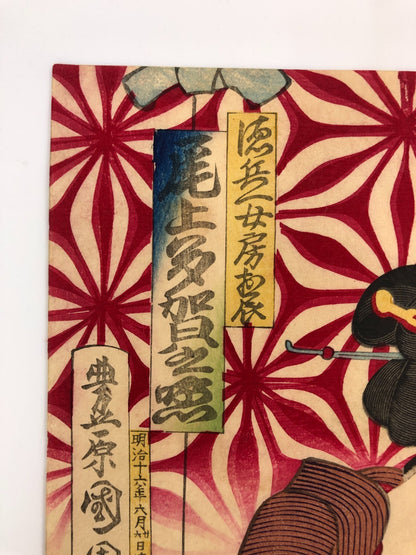 徳兵衛女房お辰
尾上多賀之丞
豊原國周
明治十六年六月廿日